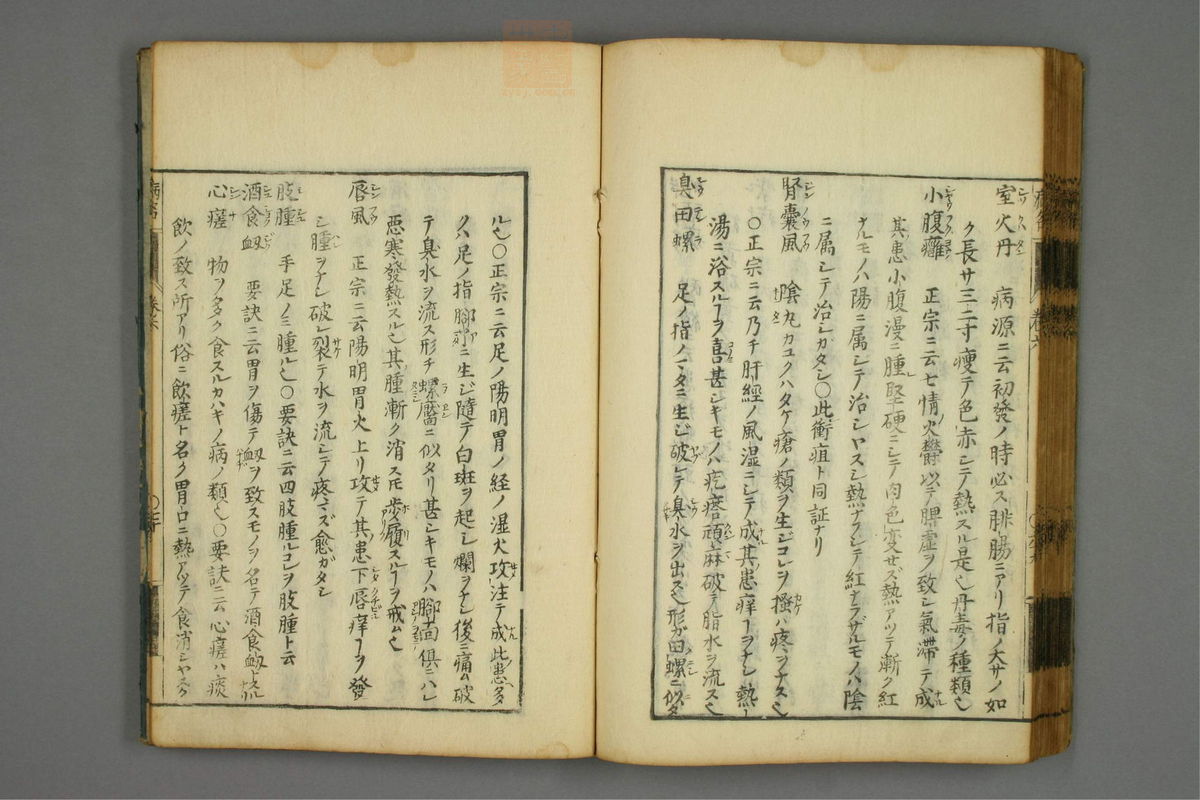 室火丹 病源ニ云初發ノ時必ス腓腸ニアリ指ノ大サノ如
ク長サ三二寸瘦テ色赤シテ熱スル是也丹毒ノ種類也
小腹癰 正宗ニ云七情ノ火欝以テ脾虛ヲ致シ氣滯テ成
其患小腹漫ニ腫堅硬ニシテ肉色変ゼズ熱アツテ漸ク紅
ナルモノハ陽ニ属シテ治シヤスシ熱ナクシテ紅ナラザルモノハ陰
ニ属シテ治シガタシ〇此衝疽ト同証ナリ
腎囊風 陰丸カユクハタケ瘡ノ類ヲ生ジコレヲ搔ハ疼ヲナス也
〇正宗ニ云乃チ肝經ノ風湿ニシテ成其患痒ヿヲナシ熱
湯ニ浴スルヿヲ喜甚シキモノハ疙瘩頑麻破テ脂水ヲ流ス也
臭田螺 足ノ指ノマタニ生ジ破レテ臭水ヲ出ス也形ガ田螺ニ似タ
ル也〇正宗ニ云足ノ陽明胃ノ経ノ湿火攻注テ成此患多
クハ足ノ指脚ニ生ジ隨テ白斑ヲ起シ爛ヲナシ後ニ痛ム破
テ臭水ヲ流ス形チ螺靨ニ似タリ甚シキモノハ脚面俱ニハレ
惡寒發熱スル也其腫漸ク消スモ歩履スルヿヲ戒ム也
唇風 正宗ニ云陽明胃火上リ攻テ其患下唇痒ヿヲ發
シ腫ヲナシ破レ裂テ水ヲ流シテ疼マズ愈ガタシ
肢腫 手足ノミ腫ル也〇要訣ニ云四肢腫ルコレヲ肢腫ト云
酒食衂 要訣ニ云胃ヲ傷テ衂ヲ致スモノヲ名テ酒食衂トスル
心瘥 物ヲ多ク食スルカハキノ病ノ類也〇要訣ニ云心瘥ハ痰
飲ノ致ス所アリ俗ニ飲瘥ト名ク胃口ニ熱アツテ食消シヤスク
巻六